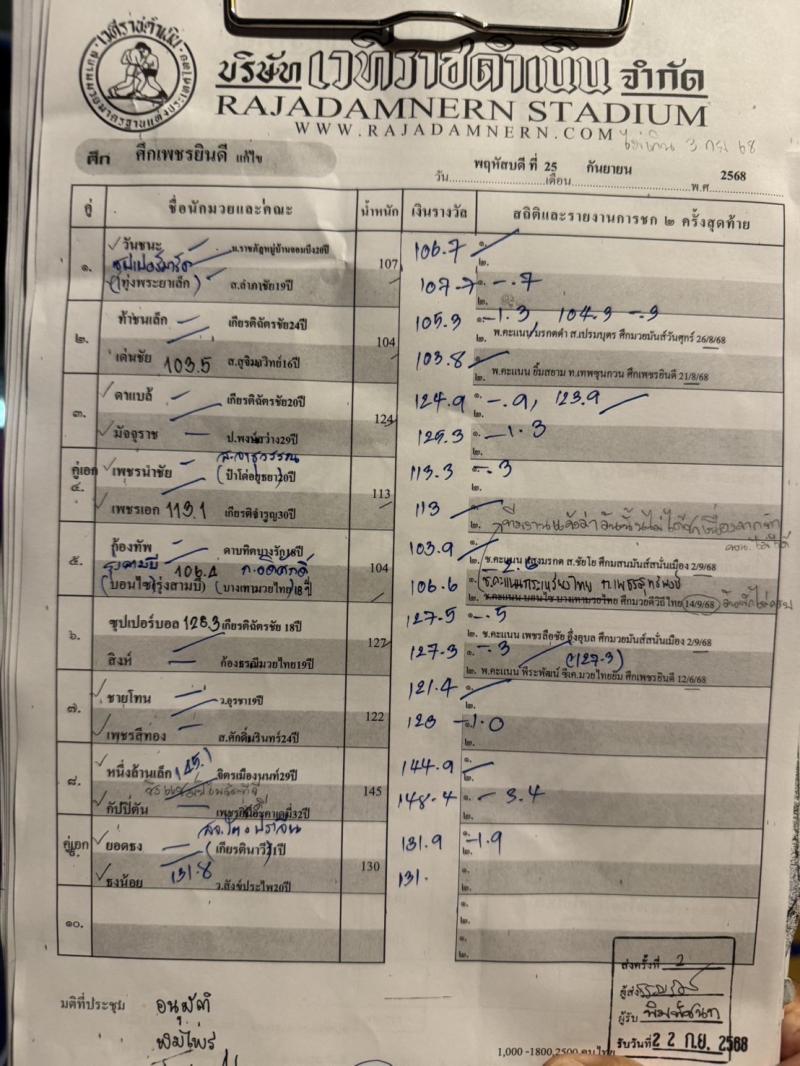 เวทีราชดำเนิน
บริษัท เวทีราชดำเนิน จำกัด
RAJADAMNERN STADIUM
WWW.RAJADAMNERN.COM
ศึก ศึกเพชรยินดี แก้ไข
วัน พฤหัสบดี ที่ 25 เดือน กันยายน พ.ศ 2568
คู่ ชื่อนักมวยและคณะ น้ำหนัก เงินรางวัล สถิติและรายงานการชก ๒ ครั้งสุดท้าย
๑. วันชนะ 107 106.7 ๑.
ซุปเปอร์มาร์ค ๒.
(ทุ่งพระยาเล็ก) ส.ลำภาชัย19ปี 107.7 ๑. -.7
๒.
๒. ท้าชนเล็ก เกียรติฉัตรชัย24ปี 104 105.3 ๑. -1.3 104.9 -.9
๒. พ.คะแนน มรกตดำ ส.เปรมบุตร ศึกมวยมันส์วันศุกร์ 26/8/68
เด่นชัย 103.5 16ปี 103.8 ๑.
๒. พ.คะแนน ยิ้มสยาม ศึกเพชรยินดี 21/8/68
๓. ดาแบล้ เกียรติฉัตรชัย20ปี 124 124.9 ๑. -.9, 123.9
๒.
มัจจุราช 29ปี 125.3 ๑. -1.3
๒.
คู่เอก
๔. เพชรนำชัย 113 113.3 ๑. -.3
๒.
เพชรเอก 113.1 30ปี 113 ๑.
๒.
๕. ก้องทัพ ดาบทิตบางรัก18ปี 104 103.9 ๑.
๒. ช.คะแนน ส.ชัยโย ศึกมวยมันส์สนั่นเมือง 2/9/68
(บอนไซ) (รุ่งสามปี) (บางเทามวยไทย) 18ปี 106.6 ๑.
๒. ช.คะแนน บอนไซ บางเทามวยไทย ศึกมวยดีวิถีไทย 14/9/68
๖. ซุปเปอร์บอล 128.3 เกียรติฉัตรชัย 18ปี 127 127.5 ๑. -.5
๒. ช.คะแนน เพชรลือชัย อึ่งอุบล ศึกมวยมันส์สนั่นเมือง 2/9/68
สิงห์ ก้องธรณีมวยไทย19ปี 127.3 ๑. -.3 (127.3)
๒. พ.คะแนน พีระพัฒน์ ซีเค.มวยไทยยิม ศึกเพชรยินดี 12/6/68
๗. ชายโทน ว.อุรชา19ปี 122 121.4 ๑.
๒.
เพชรสีทอง 24ปี 123 ๑. -1.0
๒.
๘. หนึ่งล้านเล็ก (145.) จิตรเมืองนนท์29ปี 145 144.9 ๑.
๒.
กัปปี่ตัน 32ปี 148.4 ๑. -3.4
๒.
คู่เอก
ยอดธง (เกียรตินาวี) 130 131.9 ๑. -1.9
๒.
ธงน้อย 131.8 ว.สังข์ประไพ20ปี 131. ๑.
๒.
๑๐. ๑.
๒.
๑.
๒.
ส่งครั้งที่ 2
ผู้ส่ง
ผู้รับ พิมพ์ชนก
รับวันที่ 22 ก.ย. 2568
มติที่ประชุม อนุมัติ
พิมไพร
1,000 -1800,2500 คนไทย